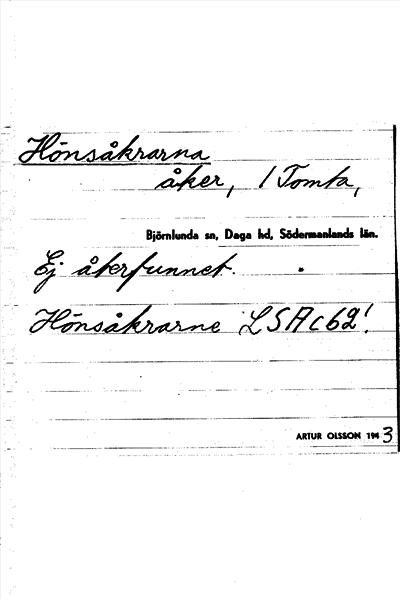 Hönsåkrarna
åker, 1 Tomta,
Björnlunda sn, Daga hd, Södermanlands län.
Ej återfunnet.
Hönsåkrarne LSA c62!
ARTUR OLSSON 1943